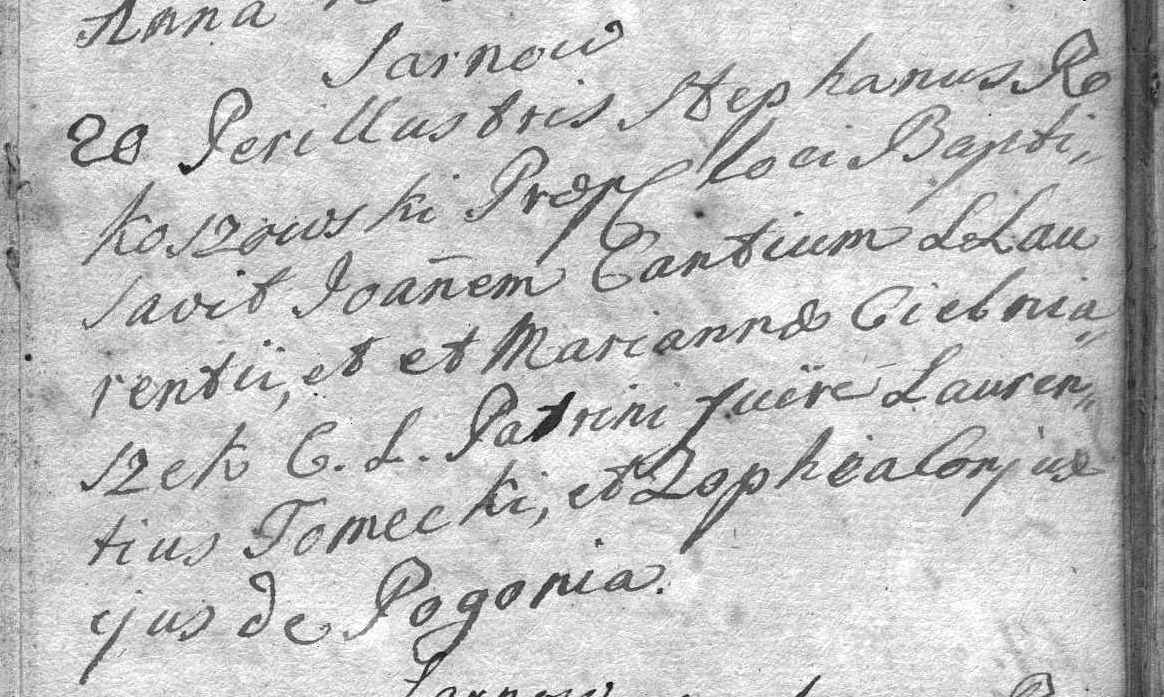 Anna
Sarnow
20 Perillustris Stephanus Ro
koszowski Præp loci Bapti„
savit Joan̄em Cantium LLau
rentii, et et Mariannæ Cieбnia„
szek C. L. Patrini fuëre Lauren„
tius Tomecki, et Zophia Conjux
ejus de Pogonia.
Sarnow